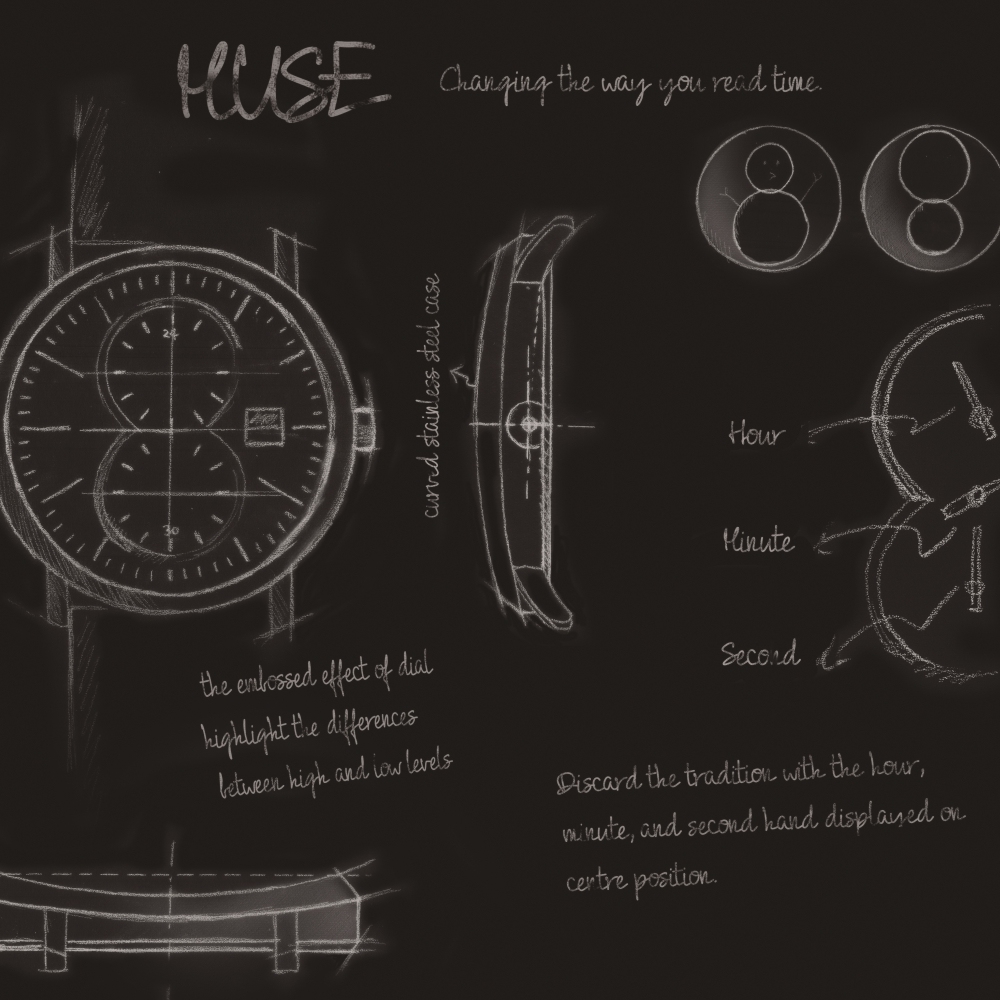 MUSE
Changing the way you read time.
24
30
curved stainless steel case
Hour
Minute
Second
the embossed effect of dial
highlight the differences
between high and low levels
Discard the tradition with the hour,
minute, and second hand displayed on
centre position.